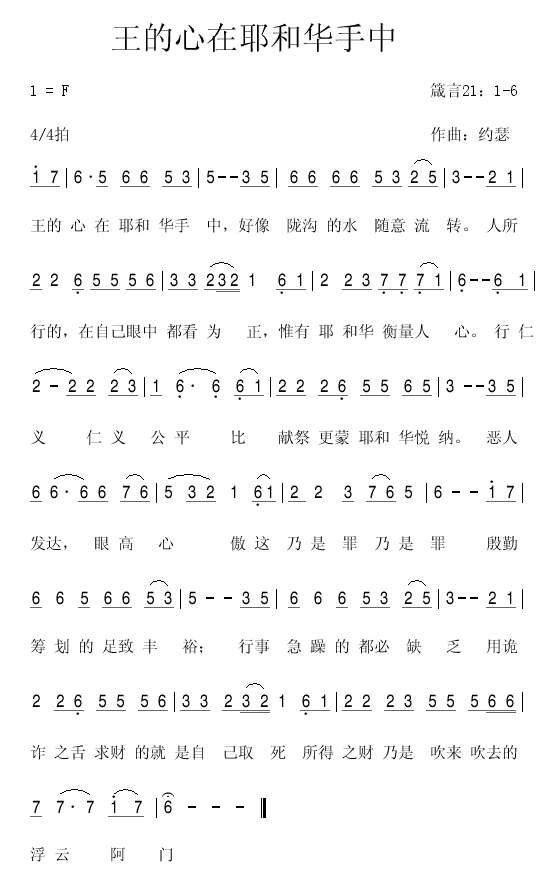 王的心在耶和华手中
1 = F
箴言21：1-6
4/4拍
作曲：约瑟
1 7|6·5 6 6 5 3|5--3 5|6 6 6 6 5 3 2 5|3--2 1|
王的 心 在 耶和 华手 中，好像 陇沟 的水 随意 流 转。 人所
2 2 6 5 5 5 6|3 3 2 3 2 1 6 1|2 2 3 7 7 7 1|6--6 1|
行的，在自己眼中 都看 为 正，惟有 耶 和华 衡量人 心。 行 仁
2-2 2 2 3|1 6·6 6 1|2 2 2 6 5 5 6 5|3--3 5|
义 仁 义 公 平 比 献祭 更蒙 耶和 华悦 纳。 恶人
6 6·6 6 7 6|5 3 2 1 6 1|2 2 3 7 6 5|6--1 7|
发达， 眼 高 心 傲 这 乃 是 罪 乃 是 罪 殷勤
6 6 5 6 6 5 3|5--3 5|6 6 6 5 3 2 5|3--2 1|
筹 划 的 足致 丰 裕； 行事 急 躁 的 都必 缺 乏 用诡
2 2 6 5 5 5 6|3 3 2 3 2 1 6 1|2 2 2 3 5 5 5 6 6|
诈 之 舌 求财 的就 是自 己取 死 所得 之财 乃是 吹来 吹去的
7 7·7 1 7|6 - - -
浮 云 阿 门